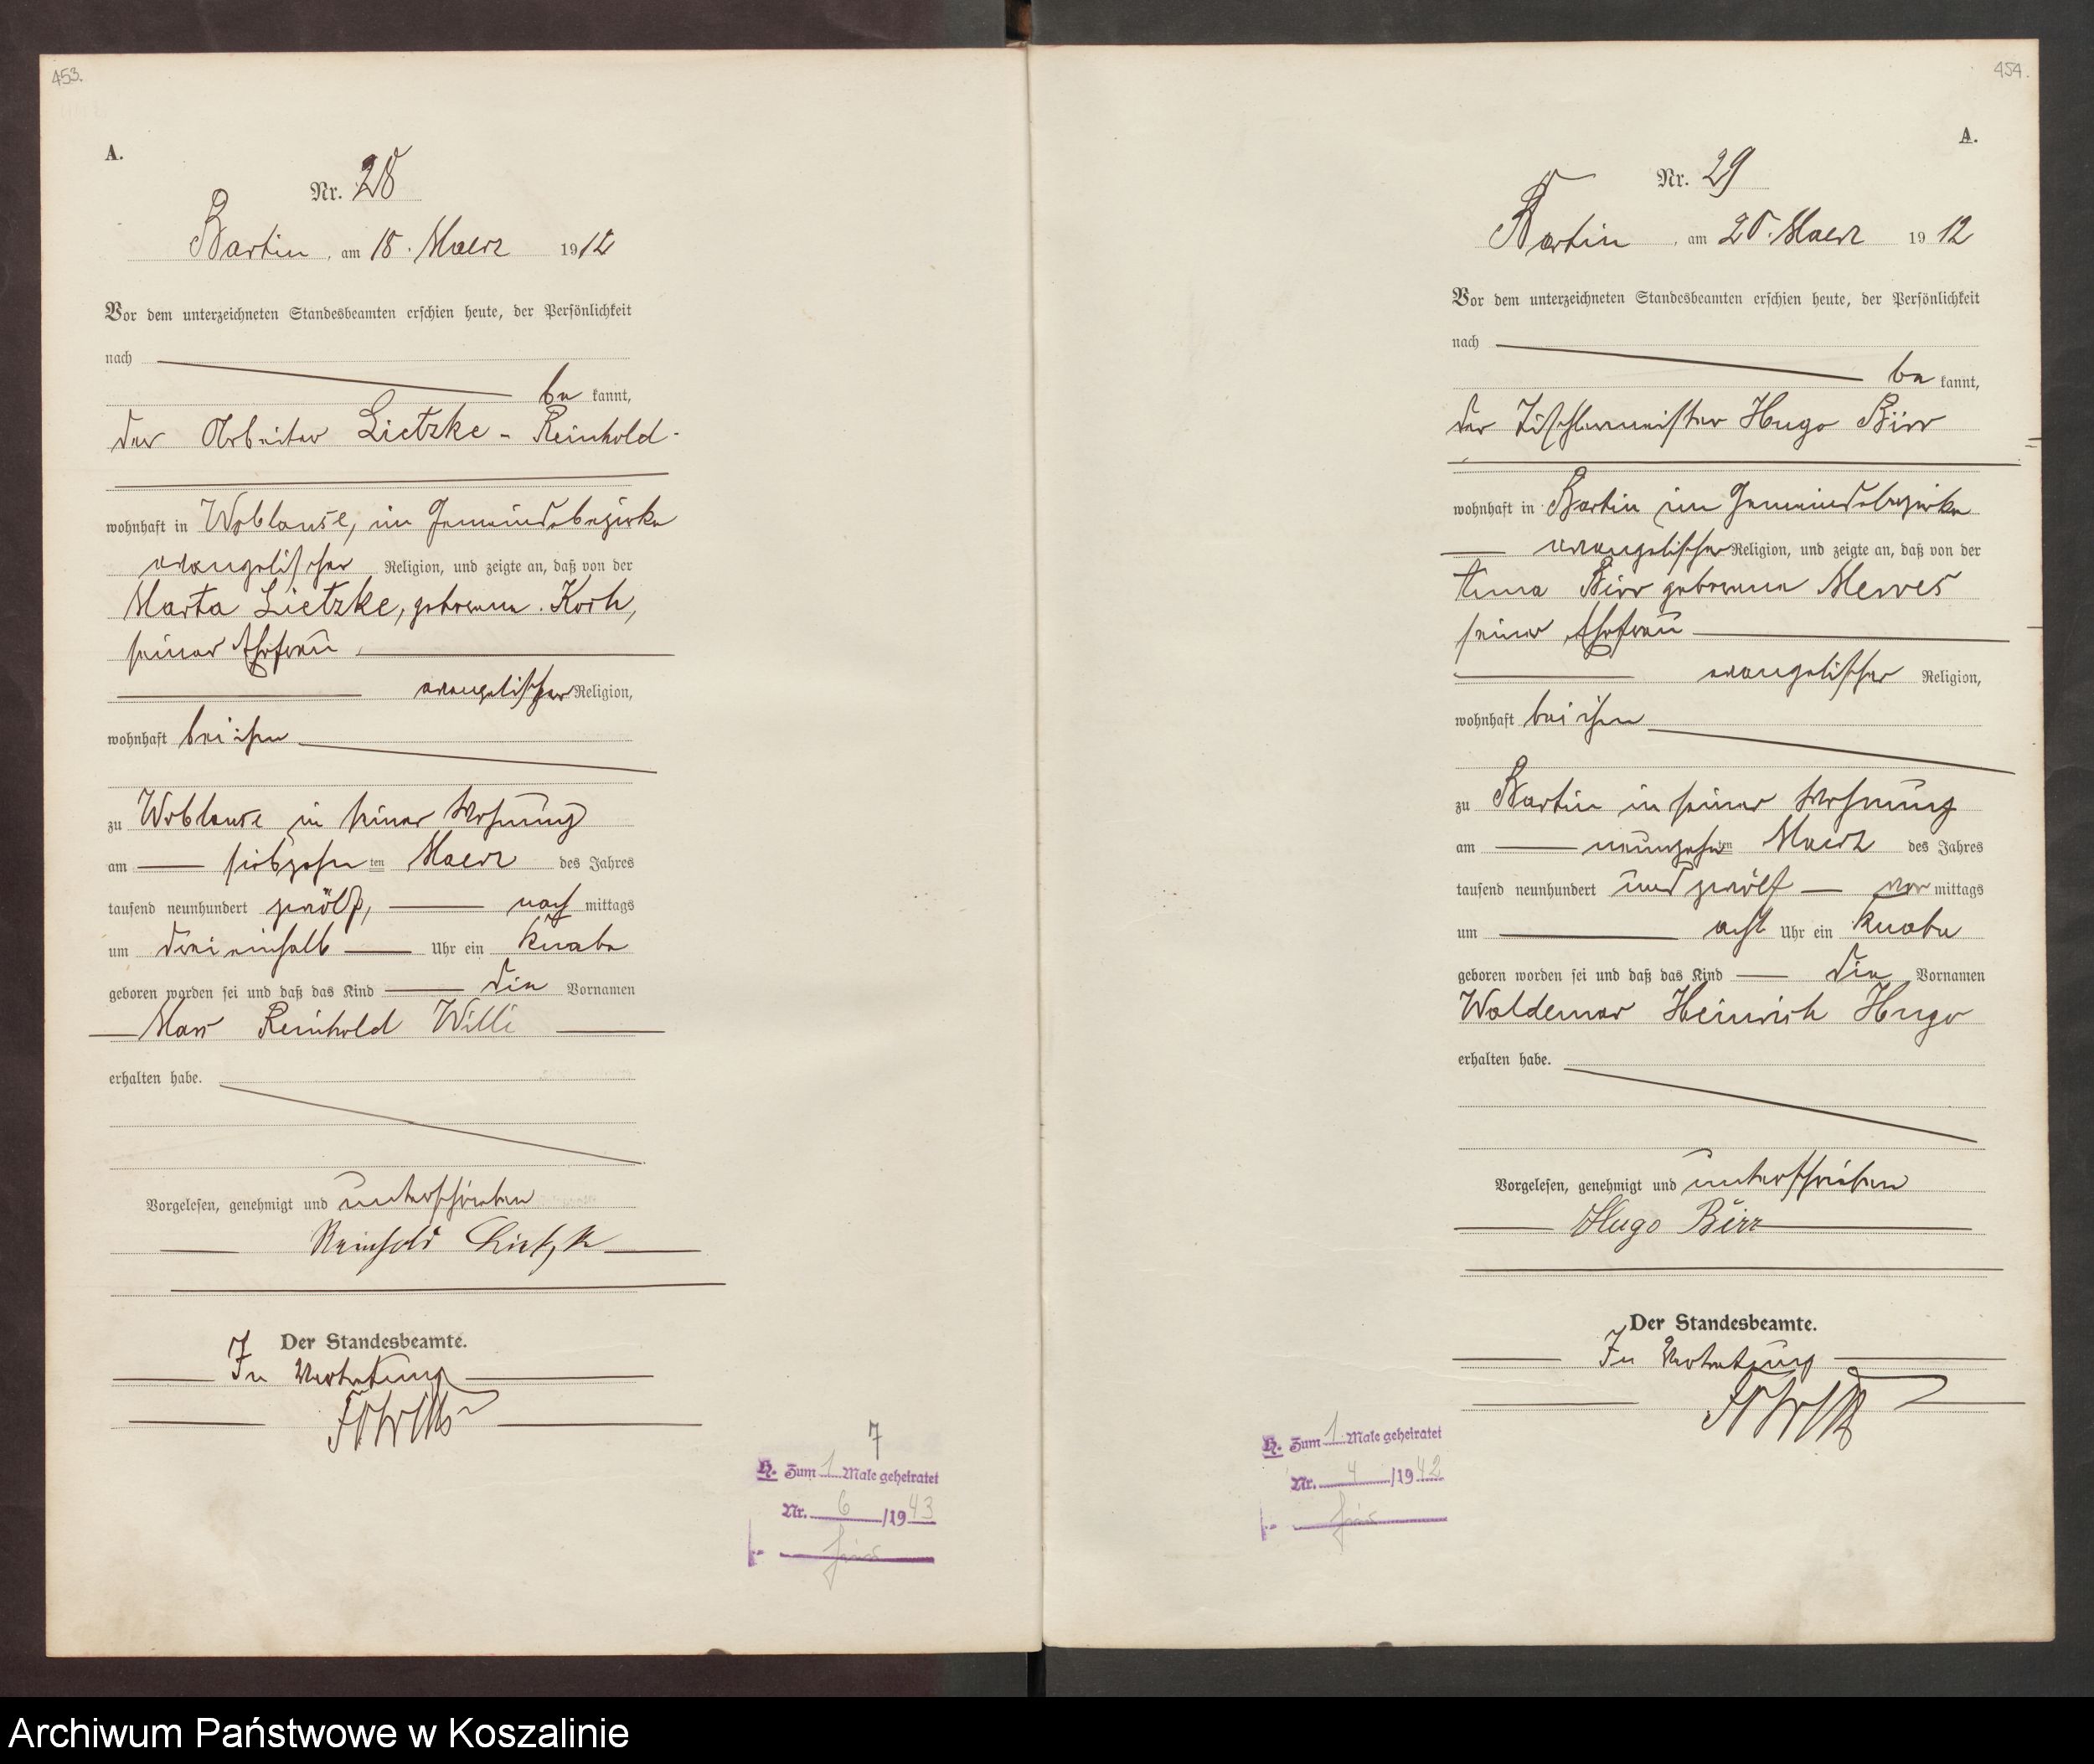 453.
A.
Nr. 28
Bartin, am 18. Maerz 1912
Vor dem unterzeichneten Standesbeamten erschien heute, der Persönlichkeit
nach
be kannt,
der Arbeiter Lietzke - Reinhold -
wohnhaft in Woblanse, im Gemeindebezirke
evangelischer Religion, und zeigte an, daß von der
Marta Lietzke, geborene Koch,
seiner Ehefrau
evangelischer Religion,
wohnhaft bei ihm
zu Woblanse in seiner Wohnung
am siebzehn ten Maerz des Jahres
tausend neunhundert zwölf, nach mittags
um drei einhalb Uhr ein Knabe
geboren worden sei und daß das Kind die Vornamen
Max Reinhold Willi
erhalten habe.
Vorgelesen, genehmigt und unterschrieben
Reinhold Lietzke
Der Standesbeamte.
In Vertretung
7
H. Zum 1 Male geheiratet
Nr. 6 /1943
454.
A.
Nr. 29
Bartin, am 20. Maerz 1912
Vor dem unterzeichneten Standesbeamten erschien heute, der Persönlichkeit
nach
be kannt,
der Tischlermeister Hugo Birr
wohnhaft in Bartin im Gemeindebezirke
evangelischer Religion, und zeigte an, daß von der
Birr geborene Mewes
seiner Ehefrau
evangelischer Religion,
wohnhaft bei ihm
zu Bartin in seiner Wohnung
am neunzehn ten Maerz des Jahres
tausend neunhundert und zwölf vor mittags
um acht Uhr ein Knabe
geboren worden sei und daß das Kind die Vornamen
Waldemar Heinrich Hugo
erhalten habe.
Vorgelesen, genehmigt und unterschrieben
Hugo Birr
Der Standesbeamte.
In Vertretung
H. Zum 1. Male geheiratet
Nr. 4 /1942
Archiwum Państwowe w Koszalinie